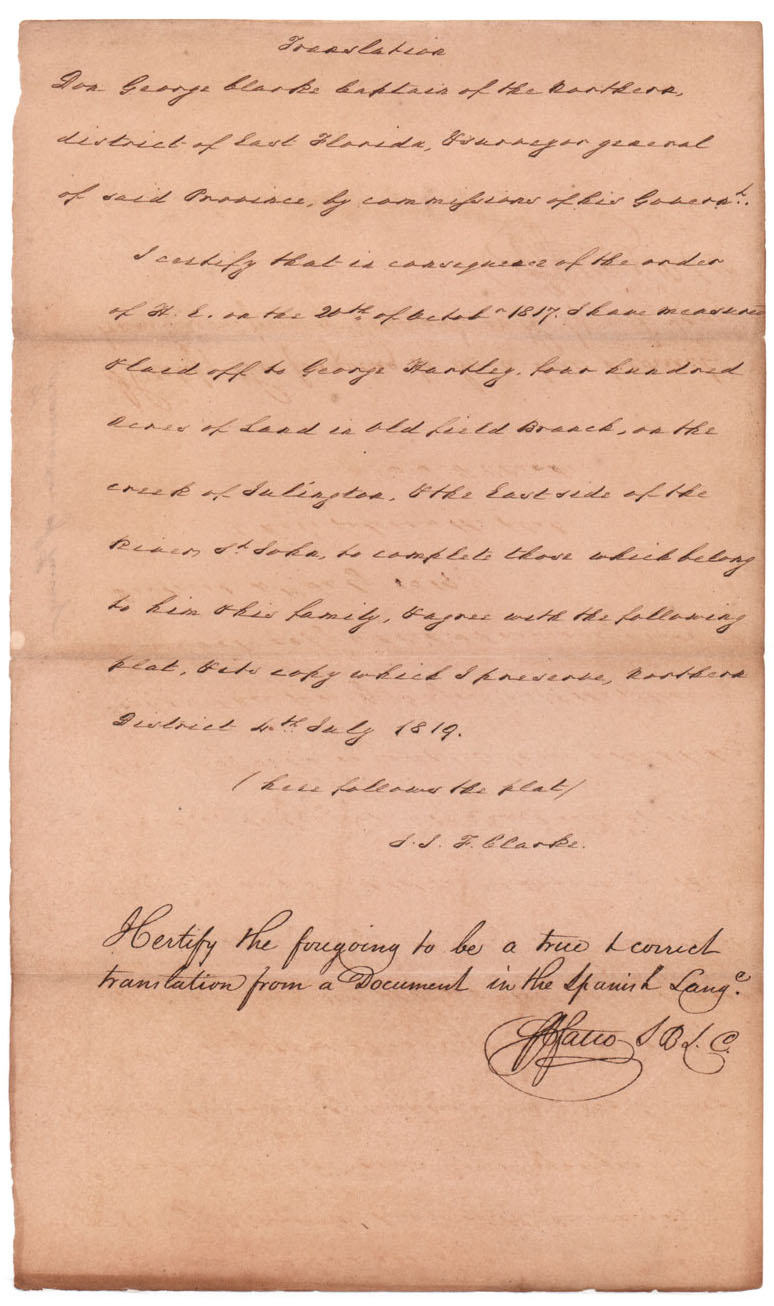 Translation
Don George Clarke Captain of the Northern,
district of East Florida, & surveyor general
of said Province, by commissions of his Governt.
I certify that in consequence of the order
of H. E. on the 20th of Octobr 1817. I have measured
& laid off to George Hartley, four hundred
Acres of Land in Old field Branch, on the
creek of Julington, & the East side of the
River St John, to complete those which belong
to him & his family, & agree with the following
plat, & its copy which I preserve, Northern
District 4th July 1819.
(here follows the plat)
J. J. F. Clarke.
I Certify the foregoing to be a true & correct
translation from a Document in the Spanish Lange.
Fatio S B L. C.